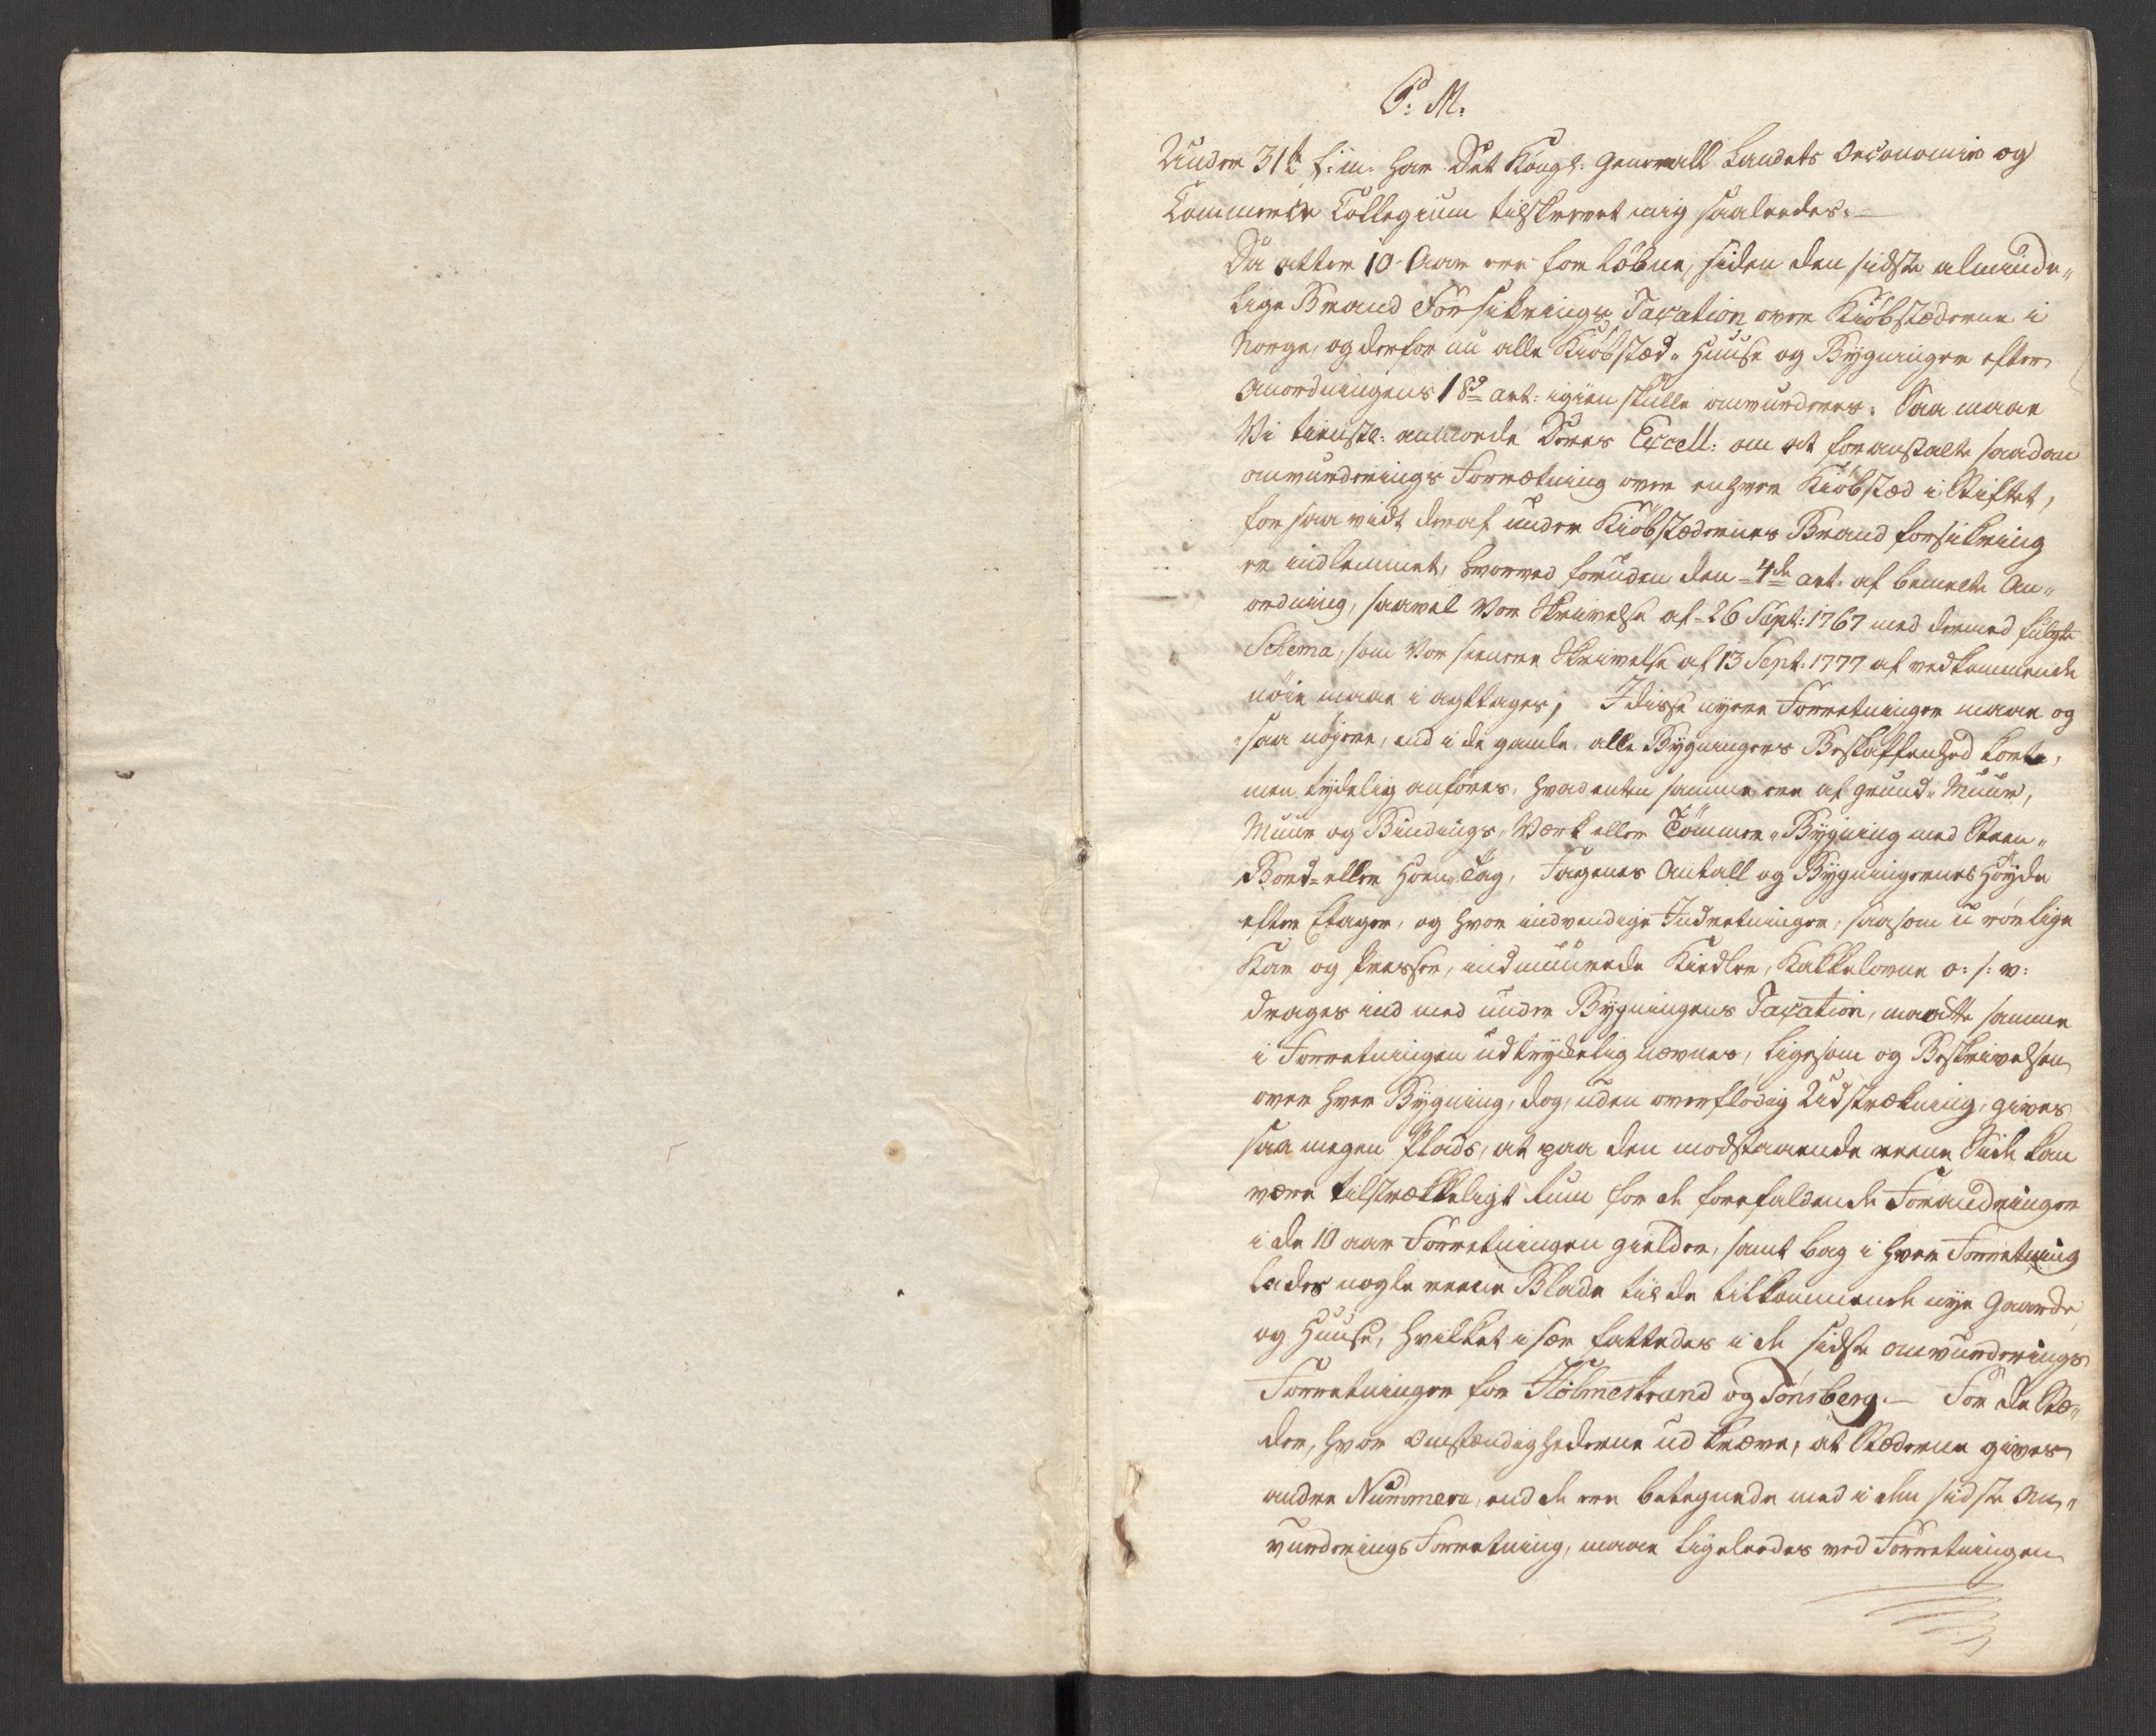 P: M:
Under 31te f: m: har Det Kongl: Generall Landets Oeconomie og
Commerce Collegium tilskrevet mig saaledes:
Da atter 10 Aar ere forløbne, siden den sidste alminde„
lige Brand Forsikrings Taxation over Kiøbstæderne i
Norge, og derfor nu alle Kiøbstæd„ Huuse og Bygninger efter
Anordningens 18de art: igien skulle omvurderes. Saa maae
Vi tienstl: anmode Deres Excell: om at foranstalte saadan
omvurderings Forrætning over enhver Kiøbstæd i Stiftet,
for saa vidt deraf under Kiøbstædernes Brand forsikring
er indlemmet, hvorved foruden den 4de art. af bemelte An„
ordning, saavel Vor Skrivelse af 26 Sept: 1767 med dermed fulgte
Schema, som Vor seenere Skrivelse af 13 Sept: 1777 af vedkommende
nøie maae i agttages; I disse nyere Forretninger maae og
saa nøjere, end i de gamle, alle Bygningers Beskaffenhed korte,
men tydelig anføres, hvad enten samme ere af grund„ Muur,
Muur og Bindings„ Værk eller Tømmer„ Bygning med Steen„
Bord= eller Horn„ Tag, Fagenes Antall og Bygningernes Høyde
efter Etager, og hvor indvendige Indretninger, saasom u rørlige
Kar og Presser, indmuurede Kiedler, Kakkelovne o: s: v:
drages ind med under Bygningens Taxation, maatte samme
i Forretningen udtrykkelig nævnes, ligesom og Beskrivelsen
over hver Bygning, dog, uden overflødig Udstrækning, gives
saa megen Plads, at paa den modstaaende reene Side kan
være tilstrækkeligt Rum for de forefaldende Forandringer
i de 10 aar Forretningen gielder, samt bag i hver Forretning
lades nogle reene Blade til de tilkommende nye Gaarde
og Huuse, hvilket i sær fattedes i de sidste omvurderings
Forretninger for Holmestrand og Tønsberg. – For de Stæ„
der, hvor Omstændighederne ud kræve, at Stæderne gives
andre Nummere, end de ere betegnede med i den sidste Om„
vurderings Forretning, maae ligeledes ved Forretningen